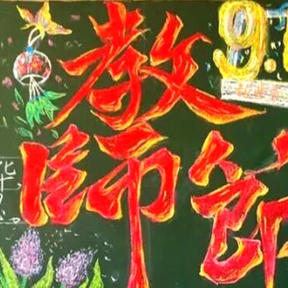 教
9.
師節